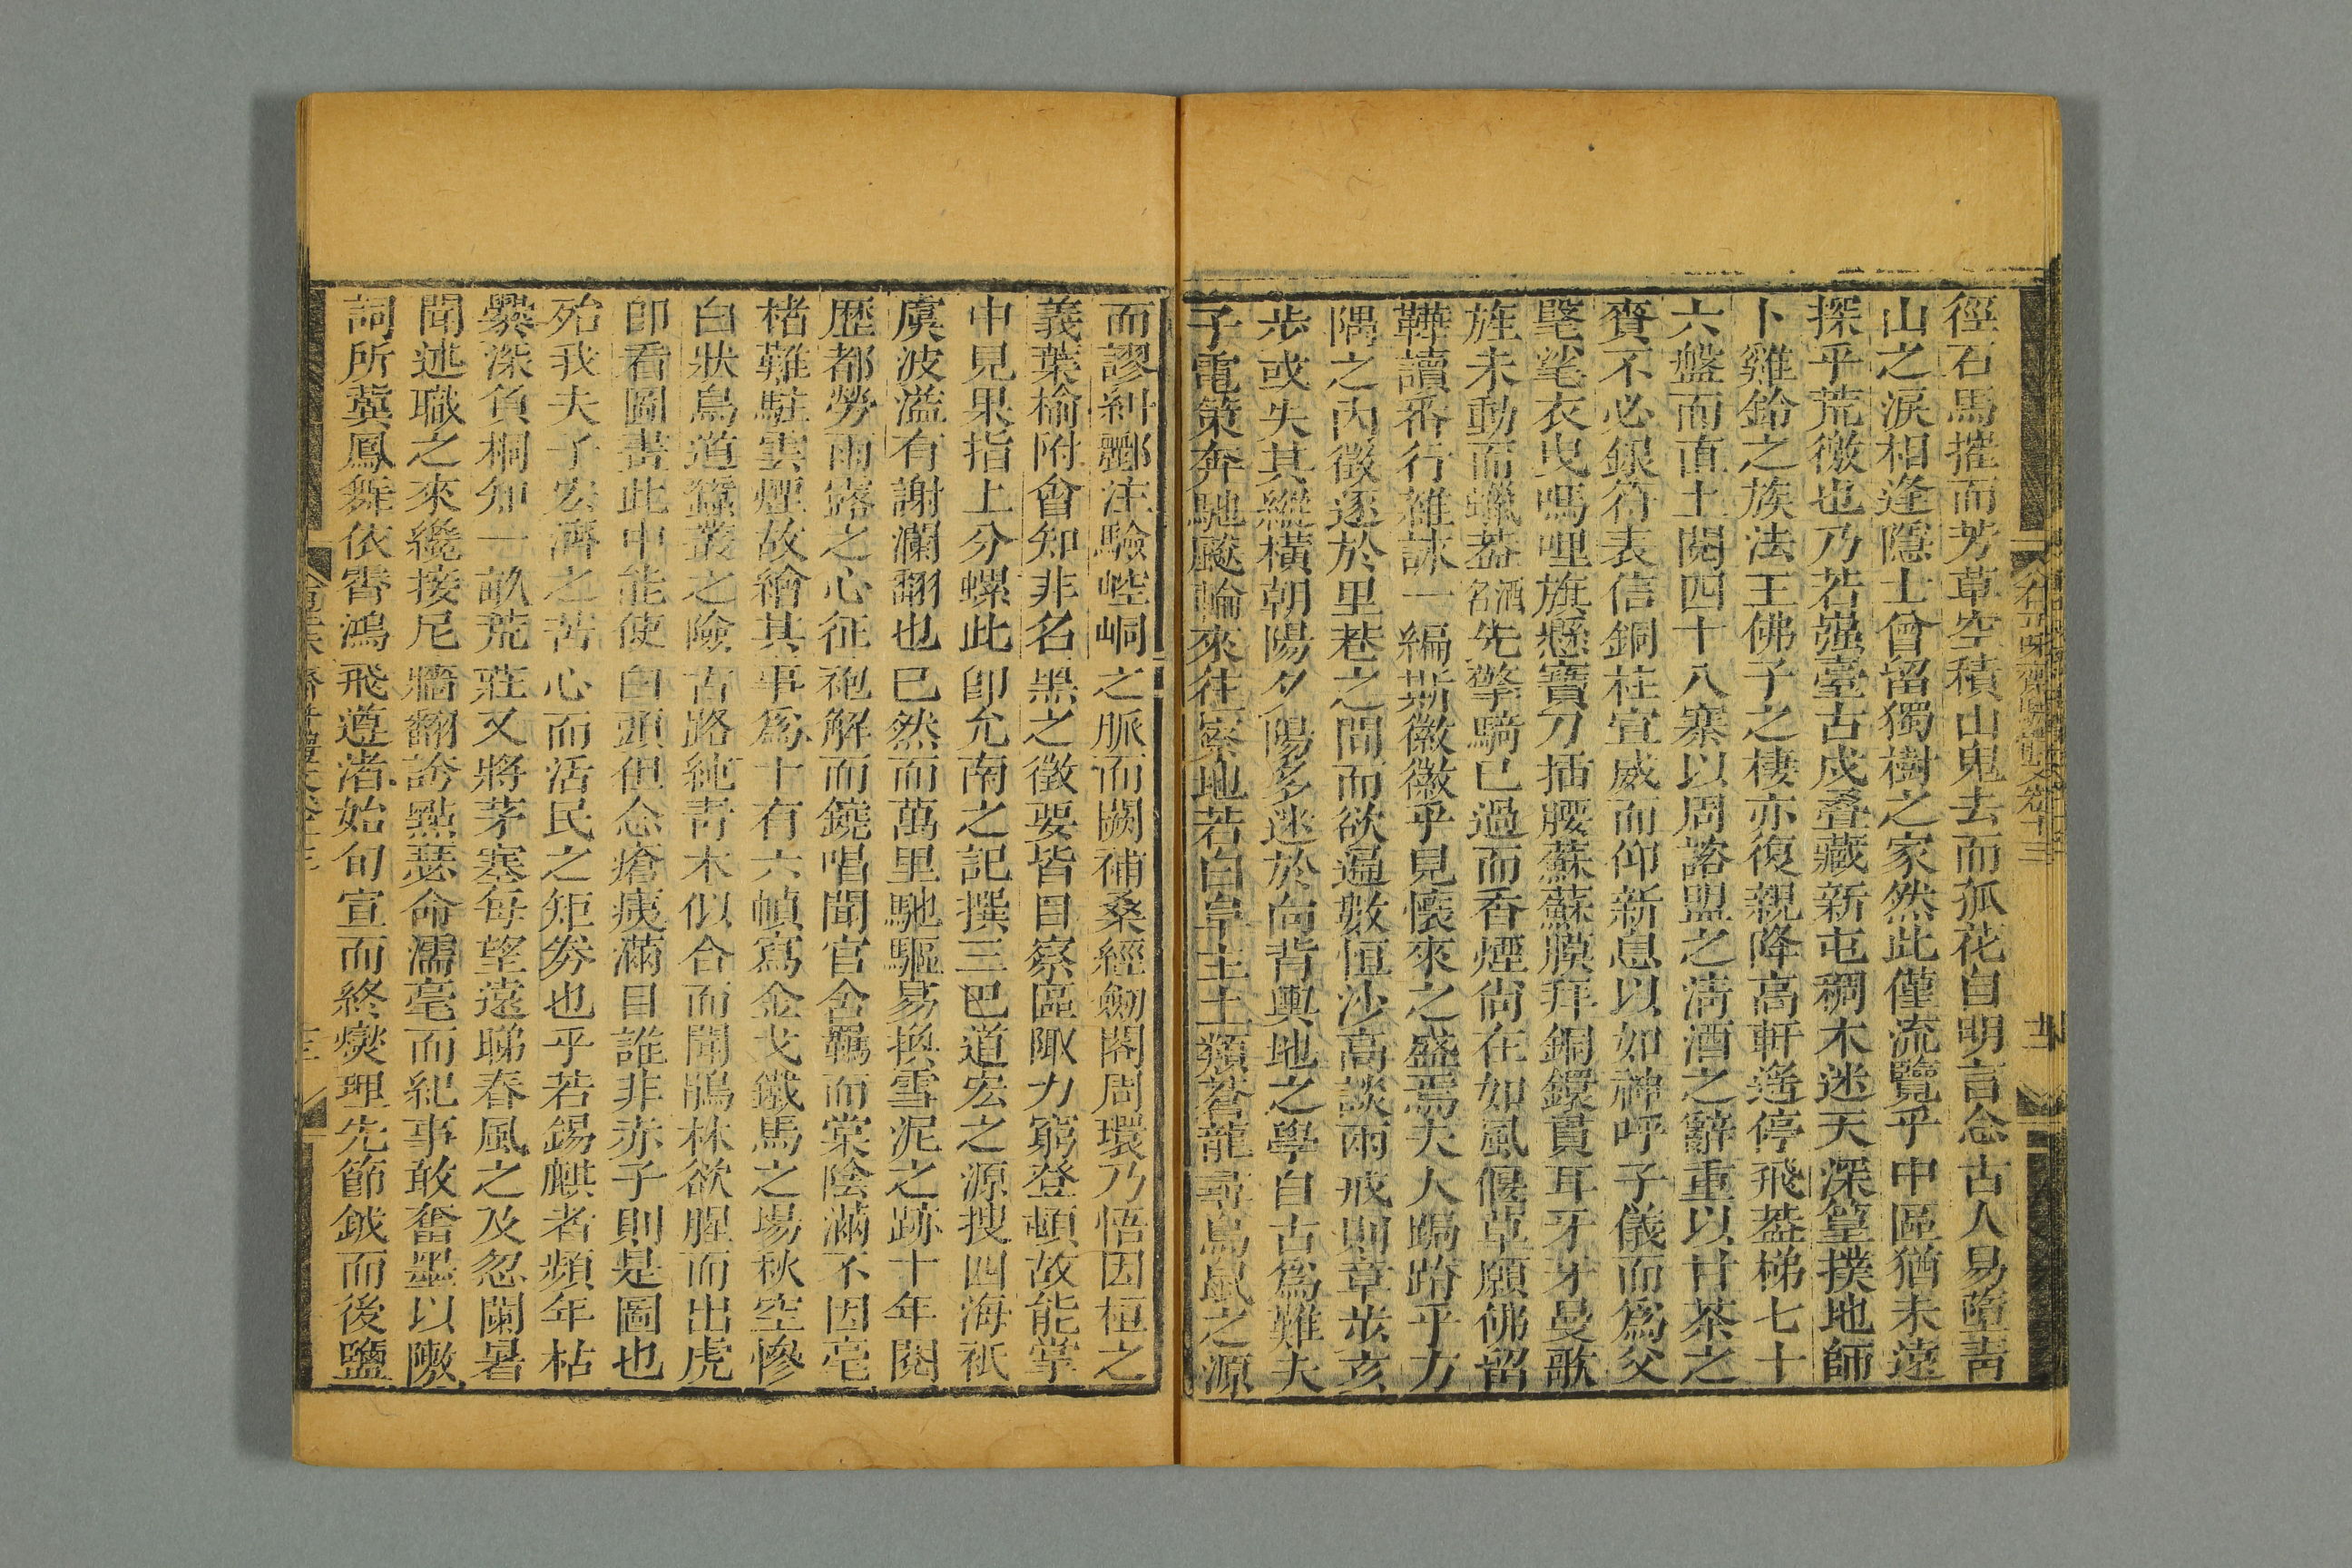 徑石馬摧而芳草空積山鬼去而孤花自明言念古人易墮靑
山之淚相逢隱士曾留獨樹之家然此僅流覽乎中區猶未遠
探乎荒徼也乃若强臺古戍叠藏新屯稠木迷天深篁撲地師
卜雞鈴之族法王佛子之棲亦復親降高軒遙停飛葢梯七十
六盤而直上閱四十八寨以周諮盟之淸酒之辭重以甘茶之
賚不必銀符表信銅柱宣威而仰新息以如神呼子儀而爲父
氅毟衣曳嗎哩旗懸寶刀插腰蘇蘇膜拜銅鐶貫耳牙牙曼歌
旌未動而蠟葢酒名先擎騎已過而香煙尙在如風偃草願佛留
鞾讀番行雜詠一編斯徽徽乎見懷來之盛焉夫人跼跡乎方
隅之內徵逐於里巷之間而欲遍數恒沙高談兩戒則章亥
步或失其縱橫朝陽夕陽多迷於向背輿地之學自古爲難夫
子電策奔馳飈輪來往察地若白阜主土類蒼龍尋鳥鼠之源
而謬糾酈注驗崆峒之脈而闕補桑經劒閣周環乃悟因桓之
義葉榆附會知非名黑之徵要皆目察區陬力窮登頓故能掌
中見果指上分螺此卽允南之記撰三巴道宏之源搜四海祇
虞波溢有謝瀾翻也巳然而萬里馳驅易換雪泥之跡十年閱
歷都勞雨露之心征袍解而鐃唱聞官舍羈而棠陰滿不因亳
楮難駐雲煙故繪其事爲十有六幀寫金戈鐵馬之場秋空慘
白狀鳥道蠶叢之險古路純靑木似合而聞鵑林欲腥而出虎
卽看圖畫此中能使白頭但念瘡痍滿目誰非赤子則是圖也
殆我夫子宏濟之苦心而活民之矩券也乎若錫麒者頻年枯
爨深負桐知一畝荒莊又將茅塞每望遠睇春風之及忽闌暑
聞述職之來纔接尼牆翻誇點瑟命濡毫而紀事敢奮墨以隞
詞所冀鳳舞依霄鴻飛遵渚始旬宣而終燮理先節鉞而後鹽